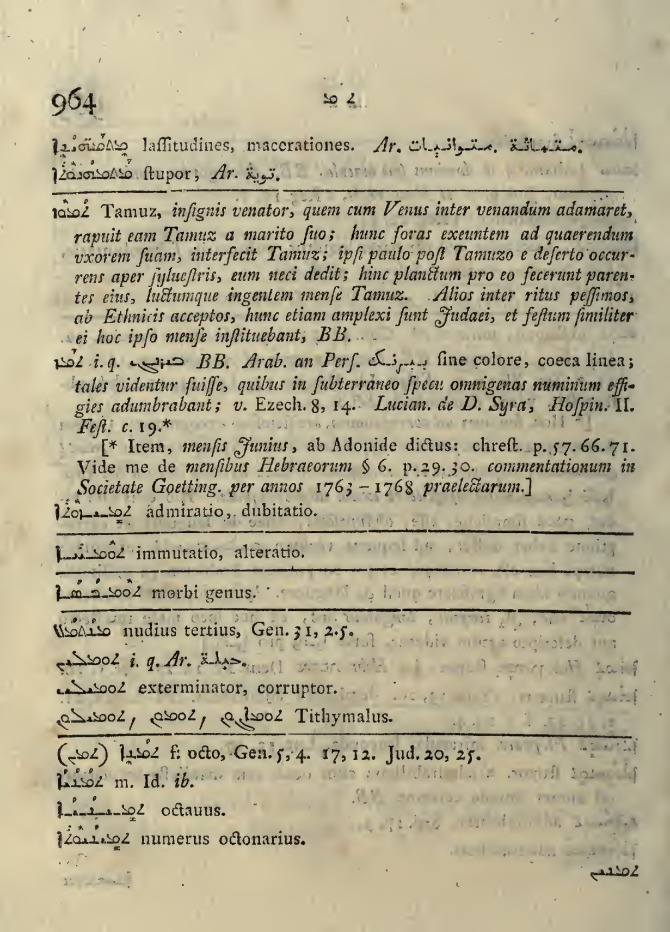 964 ܬ ܡ
lassitudines, macerationes. Ar.
stupor; Ar.
ܬܡܘܙ Tamuz, insignis venator, quem cum Venus inter venandum adamaret,
rapuit eam Tamuz a marito suo; hunc foras exeuntem ad quaerendum
vxorem suam, interfecit Tamuz; ipsi paulo post Tamuzo e deserto occur-
rens aper syluestris, eum neci dedit; hinc planctum pro eo fecerunt paren-
tes eius, luctumque ingentem mense Tamuz. Alios inter ritus pessimos,
ab Ethnicis acceptos, hunc etiam amplexi sunt Judaei, et festum similiter
ei hoc ipso mense instituebant, BB.
i. q. BB. Arab. an Pers. sine colore, coeca linea;
tales videntur fuisse, quibus in subterraneo specu omnigenas numinum effi-
gies adumbrabant; v. Ezech. 8, 14. Lucian. de D. Syra, Hospin. II.
Fest. c. 19.*
[* Item, mensis Junius, ab Adonide dictus: chrest. p. 57. 66. 71.
Vide me de mensibus Hebraeorum § 6. p. 29. 30. commentationum in
Societate Goetting. per annos 1763 – 1768 praelectarum.]
ܬܡܝܗܘܬܐ admiratio, dubitatio.
immutatio, alteratio.
morbi genus.
nudius tertius, Gen. 31, 2. 5.
i. q. Ar.
exterminator, corruptor.
Tithymalus.
(ܬܡܢ) ܬܡܢܐ f. octo, Gen. 5, 4. 17, 12. Jud. 20, 25.
ܬܡܢܝܐ m. Id. ib.
ܬܡܝܢܝܐ octauus.
ܬܡܝܢܝܘܬܐ numerus octonarius.
ܬܡܢܝܢ